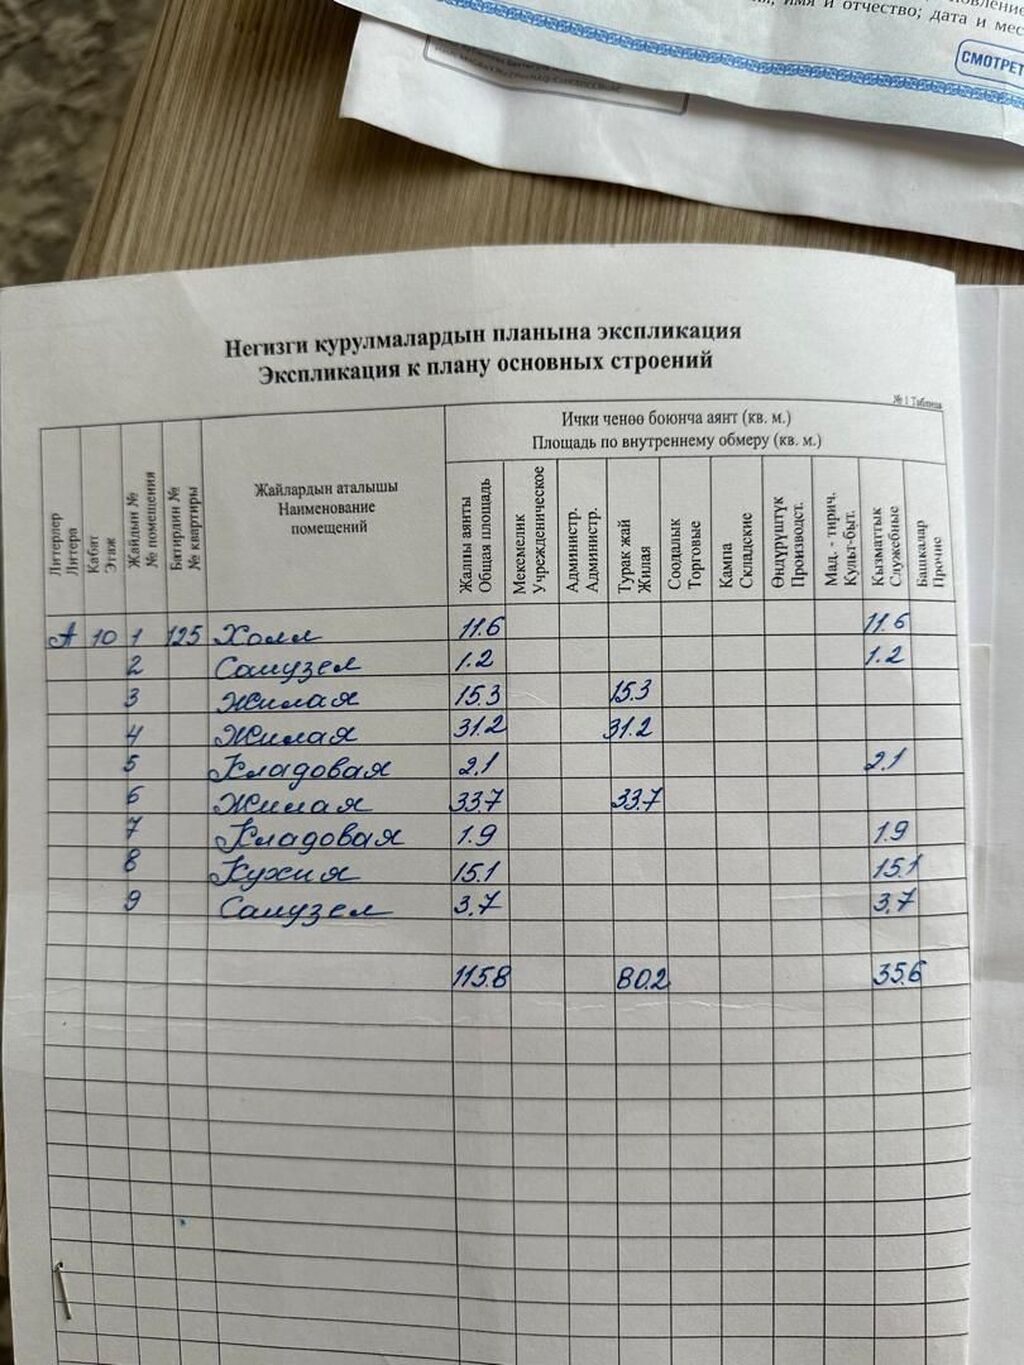 имя и отчество; дата и мес
СМОТРЕТ
Негизги курулмалардын планына экспликация
Экспликация к плану основных строений
№ 1 Таблица
Литерлер Литера
Кабат Этаж
Жайдын № № помещения
Батирдин № № квартиры
Жайлардын аталышы
Наименование
помещений
Ички ченөө боюнча аянт (кв. м.)
Площадь по внутреннему обмеру (кв. м.)
Жалпы аянты Общая площадь
Мекемелик Учрежденическое
Администр. Администр.
Турак жай Жилая
Соодалык Торговые
Кампа Складские
Өндүрүштүк Производст.
Мад. - тирич. Культ-быт.
Кызматтык Служебные
Башкалар Прочие
А 10 1 125 Холл 11.6 11.6
2 Санузел 1.2 1.2
3 Жилая 15.3 15.3
4 Жилая 31.2 31.2
5 Кладовая 2.1 2.1
6 Жилая 33.7 33.7
7 Кладовая 1.9 1.9
8 Кухня 15.1 15.1
9 Санузел 3.7 3.7
115.8 80.2 35.6